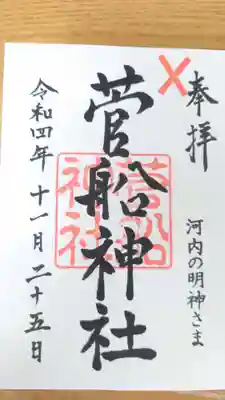 奉拝
河内の明神さま
菅船神社
菅船神社
令和四年十一月二十五日